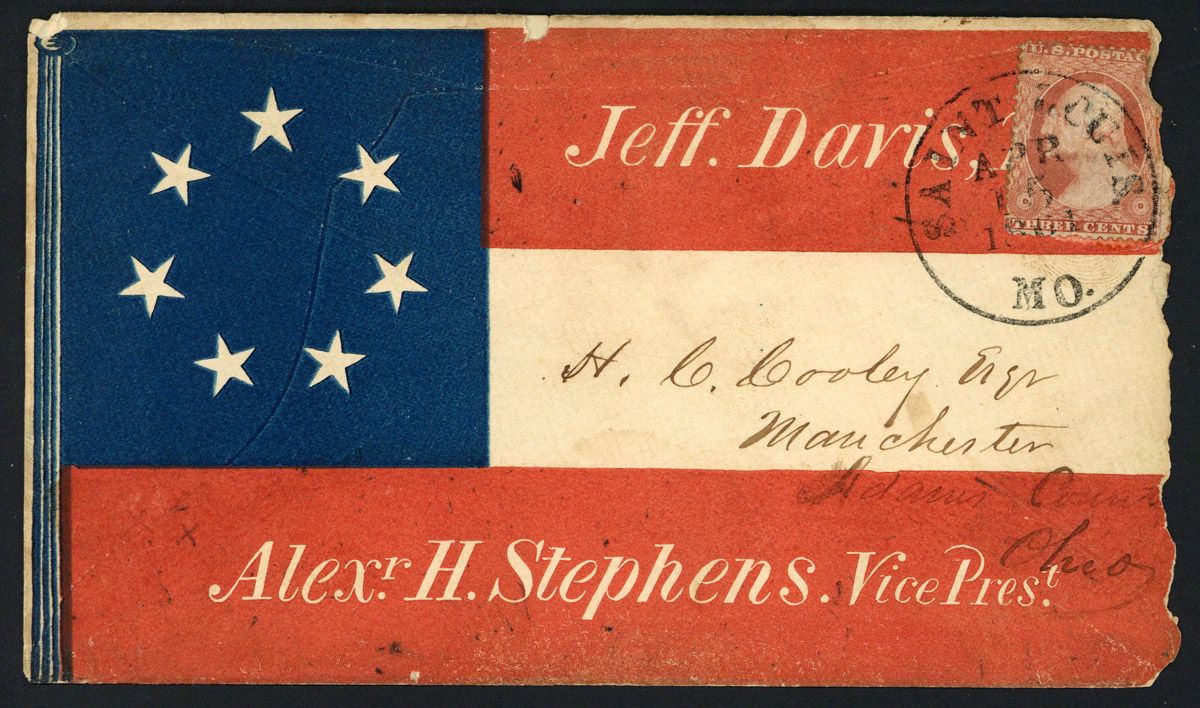 Jeff. Davis,
U.S. POSTAG
THREE CENTS
SAINT LOUIS
APR
15
MO.
H. C. Cooley Esqr
Manchester
Adams Coun
Ohio
Alex.r H. Stephens. Vice Pres.t